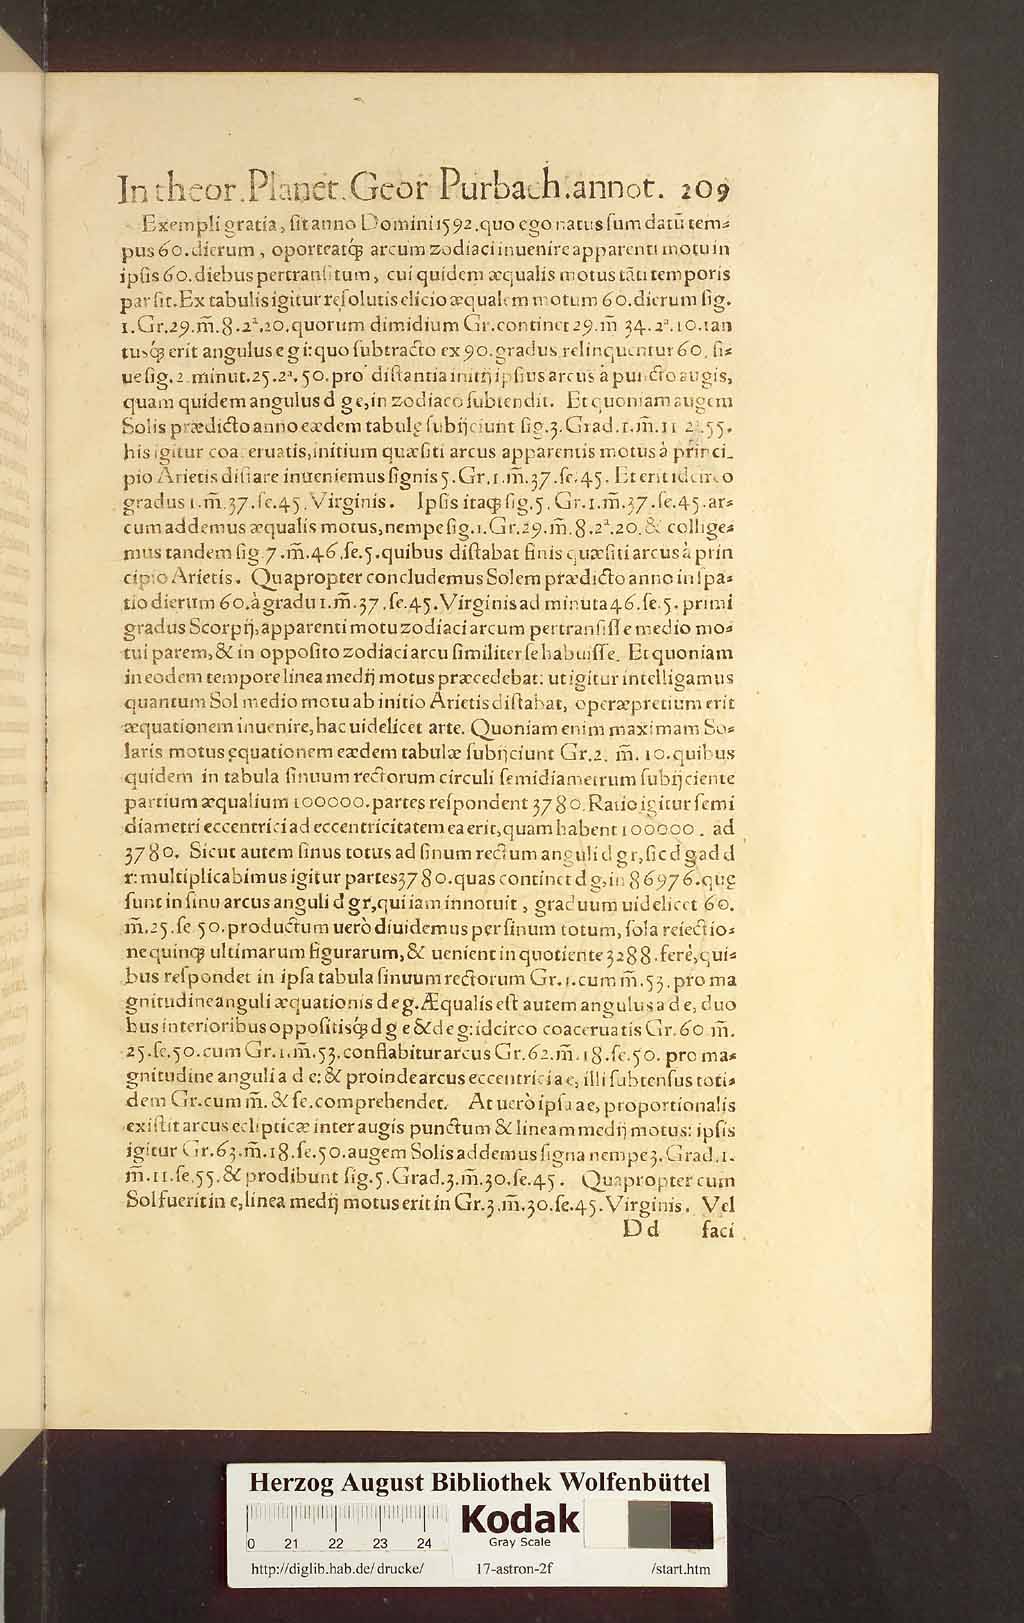 In theor. Planet. Geor Purbach. annot. 209
Exempli gratia, sit anno Domini 1592. quo ego natus sum datũ tem⸗
pus 60. dierum, oporteatq́; arcum zodiaci inuenire apparenti motu in
ipsis 60. diebus pertransitum, cui quidem æqualis motus tãti temporis
par sit. Ex tabulis igitur resolutis elicio æqualem motum 60. dierum sig.
1. Gr. 29. m̃. 8. 2ª. 20. quorum dimidium Gr. continet 29. m̃ 34. 2ª. 10. tan
tusq́; erit angulus e g i: quo subtracto ex 90. gradus relinquentur 60. si⸗
ue sig. 2. minut. 25. 2ª. 50. pro distantia initij ipsius arcus à puncto augis,
quam quidem angulus d g e, in zodiaco subtendit. Et quoniam augem
Solis prædicto anno eædem tabulę subijciunt sig. 3. Grad. 1. m̃. 11 2ª. 55.
his igitur coaceruatis, initium quæsiti arcus apparentis motus à princi⸗
pio Arietis distare inueniemus signis 5. Gr. 1. m̃. 37. se. 45. Et erit idcirco
gradus 1. m̃. 37. se. 45. Virginis. Ipsis itaq; sig. 5. Gr. 1. m̃. 37. se. 45. ar⸗
cum addemus æqualis motus, nempe sig. 1. Gr. 29. m̃. 8. 2ª. 20. & collige⸗
mus tandem sig. 7. m̃. 46. se. 5. quibus distabat finis quæsiti arcus à prin
cipio Arietis. Quapropter concludemus Solem prædicto anno in spa⸗
tio dierum 60. à gradu 1. m̃. 37. se. 45. Virginis ad minuta 46. se. 5. primi
gradus Scorpij, apparenti motu zodiaci arcum pertransisse medio mo⸗
tui parem, & in opposito zodiaci arcu similiter se habuisse. Et quoniam
in eodem tempore linea medij motus præcedebat: ut igitur intelligamus
quantum Sol medio motu ab initio Arietis distabat, operæpretium erit
æquationem inuenire, hac uidelicet arte. Quoniam enim maximam So⸗
laris motus ęquationem eædem tabulæ subijciunt Gr. 2. m̃. 10. quibus
quidem in tabula sinuum rectorum circuli semidiametrum subijciente
partium æqualium 100000. partes respondent 3780. Ratio igitur semi
diametri eccentrici ad eccentricitatem ea erit, quam habent 100000. ad
3780. Sicut autem sinus totus ad sinum rectum anguli d g r, sic d g ad d
r: multiplicabimus igitur partes 3780. quas continet d g, in 86976. quę
sunt in sinu arcus anguli d g r, qui iam innotuit, graduum uidelicet 60.
m̃. 25. se 50. productum uerò diuidemus per sinum totum, sola reiectio⸗
ne quinq; ultimarum figurarum, & uenient in quotiente 3288. ferè, qui⸗
bus respondet in ipsa tabula sinuum rectorum Gr. 1. cum m̃. 53. pro ma
gnitudine anguli æquationis d e g. Æqualis est autem angulus a d e, duo
bus interioribus oppositisq́; d g e & d e g: idcirco coaceruatis Gr. 60 m̃.
25. se. 50. cum Gr. 1. m̃. 53. conflabitur arcus Gr. 62. m̃. 18. se. 50. pro ma⸗
gnitudine anguli a d e: & proinde arcus eccentrici a e, illi subtensus toti⸗
dem Gr. cum m̃. & se. comprehendet. At uerò ipsi a e, proportionalis
existit arcus eclipticæ inter augis punctum & lineam medij motus: ipsis
igitur Gr. 63. m̃. 18. se. 50. augem Solis addemus signa nempe 3. Grad. 1.
m̃. 11. se. 55. & prodibunt sig. 5. Grad. 3. m̃. 30. se. 45. Quapropter cum
Sol fuerit in e, linea medij motus erit in Gr. 3. m̃. 30. se. 45. Virginis. Vel
D d faci
Herzog August Bibliothek Wolfenbüttel
0 21 22 23 24
Kodak
Gray Scale
http://diglib.hab.de/drucke/ 17-astron-2f /start.htm